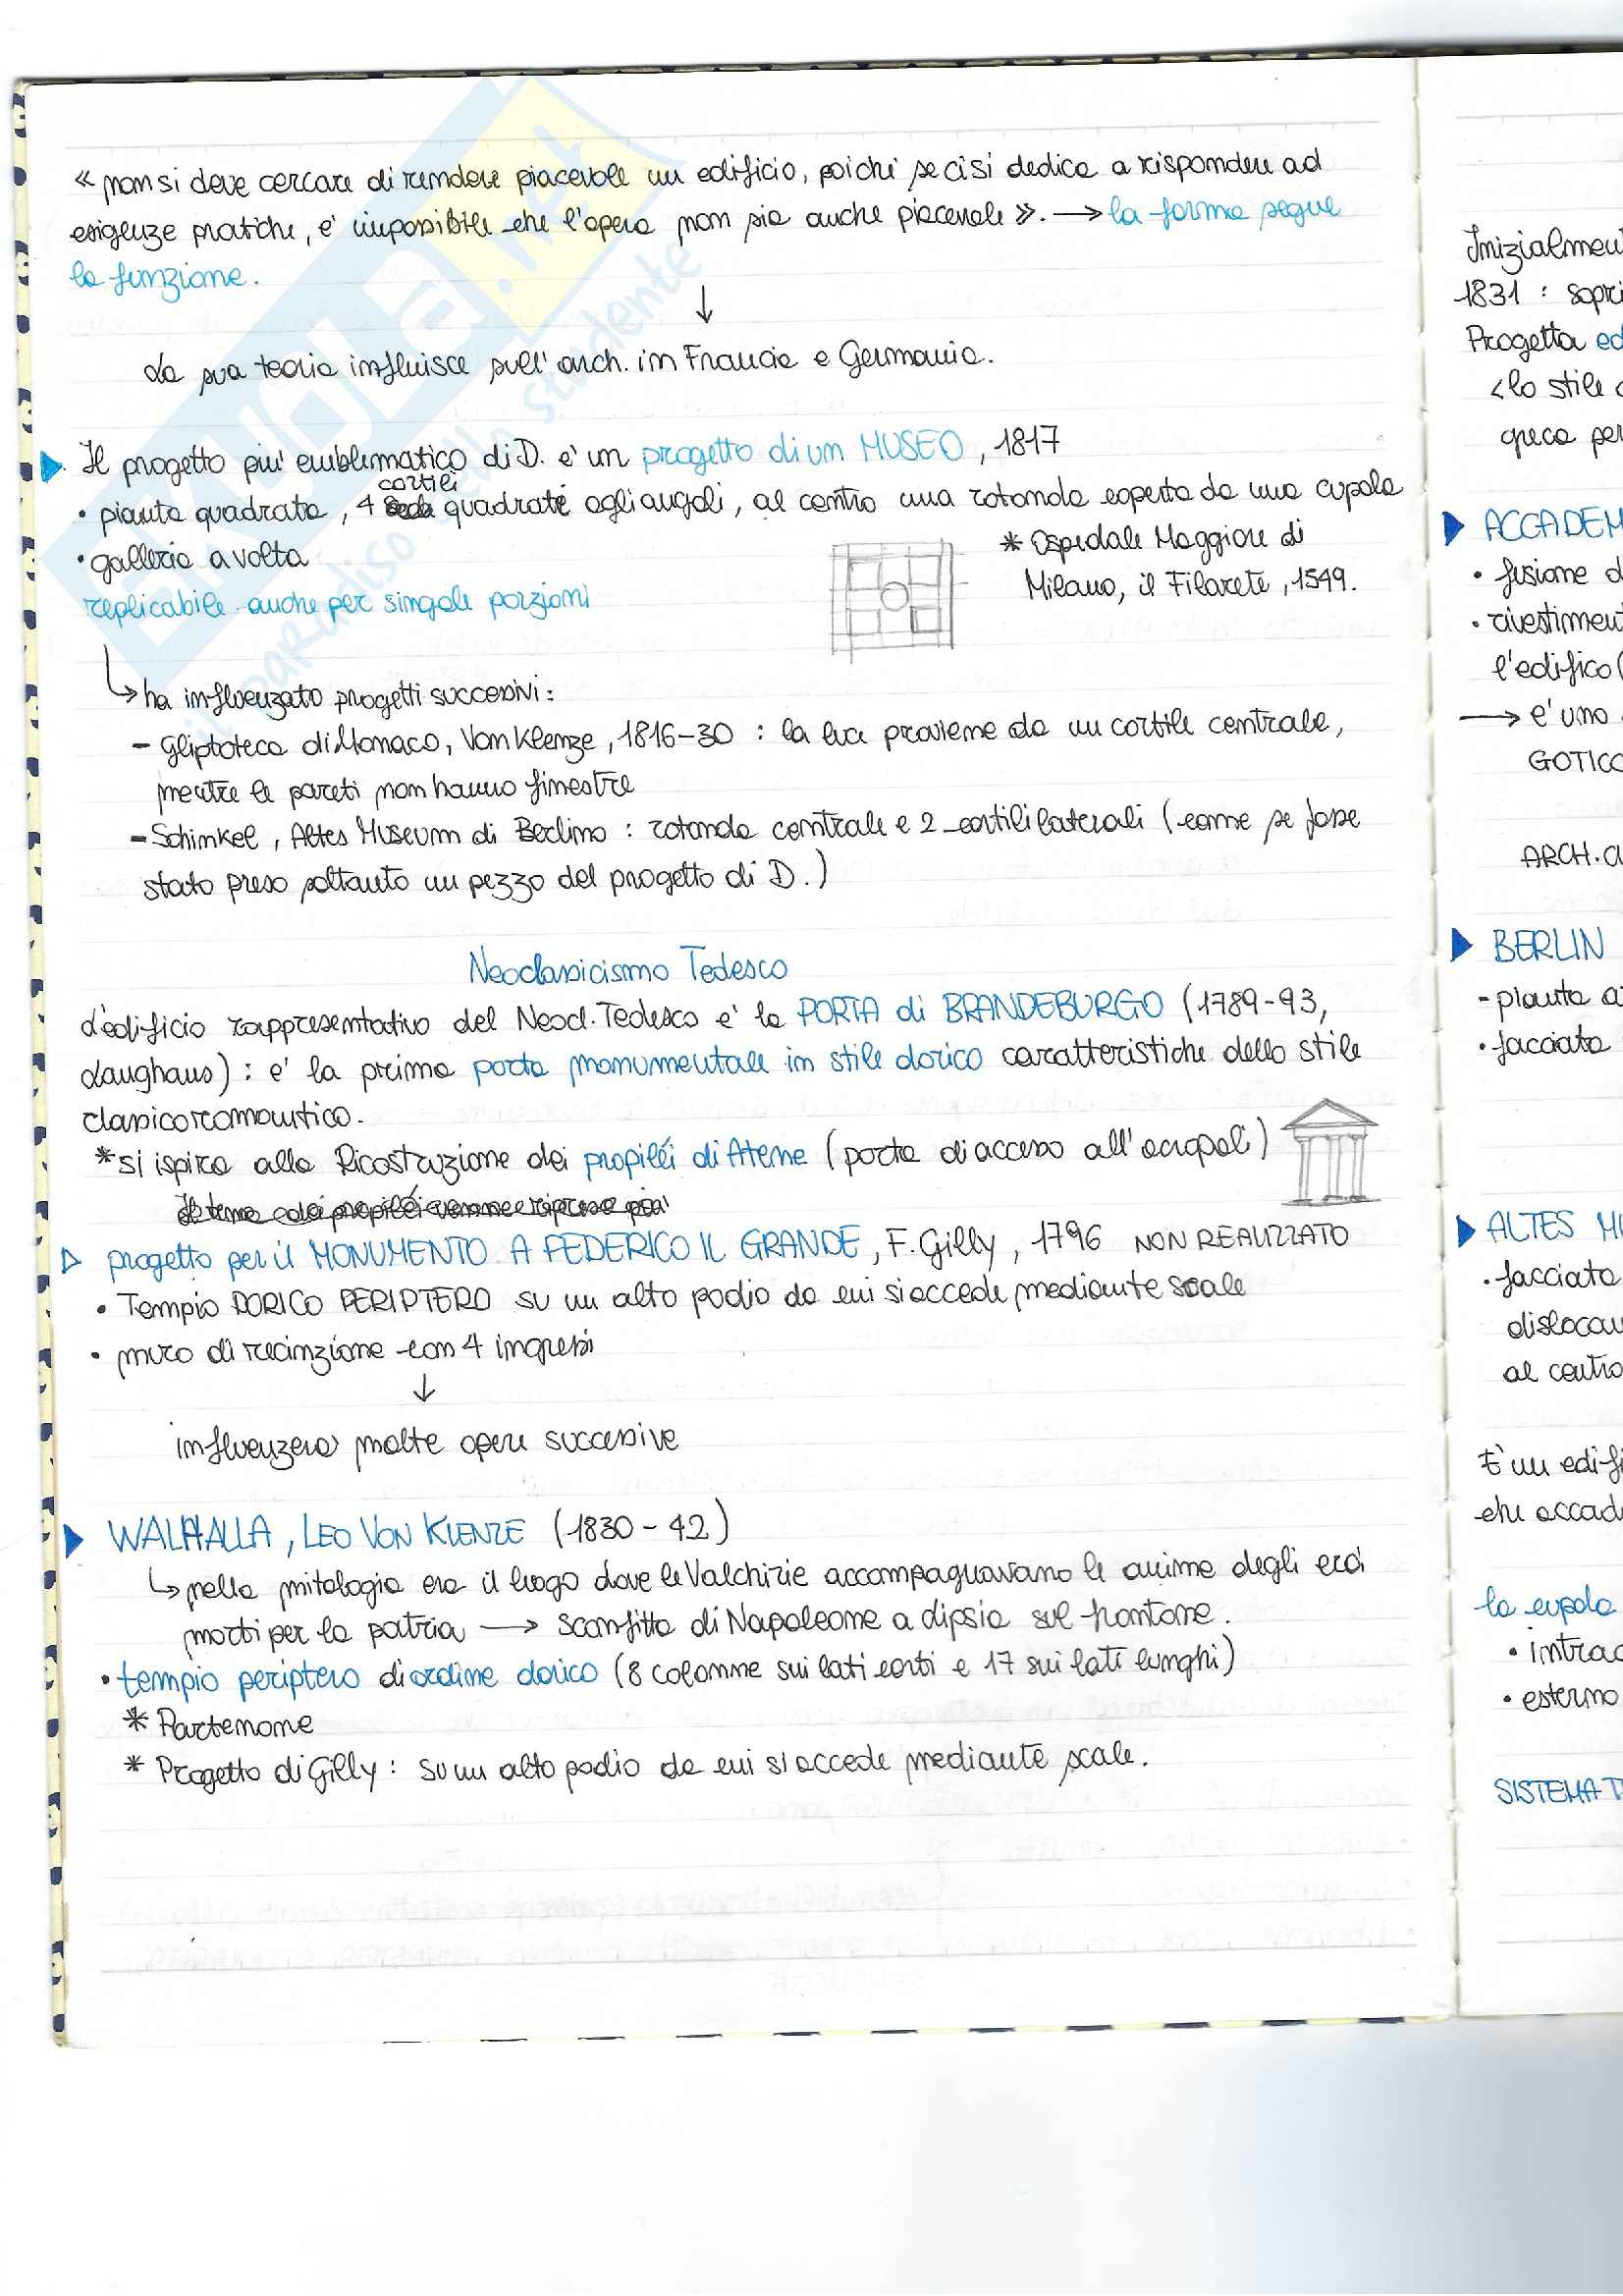 « non si deve cercare di rendere piacevole un edificio, poiché se ci si dedica a rispondere ad
esigenze pratiche, e' impossibile che l'opera non sia anche piacevole ». → la forma segue
la funzione.
↓
La sua teoria influisce sull'arch. in Francia e Germania.
Il progetto piu' emblematico di D. e' un progetto di un MUSEO, 1817
cortili
• pianta quadrata, 4 quadrati agli angoli, al centro una rotonda coperta da una cupola
• galleria a volta
* Ospedale Maggiore di
Milano, il Filarete, 1549.
replicabile anche per singole porzioni
↳ ha influenzato progetti successivi:
- Gliptoteca di Monaco, Von Klenze, 1816-30 : la luce proviene da un cortile centrale,
mentre le pareti non hanno finestre
- Schinkel, Altes Museum di Berlino : rotonda centrale e 2 cortili laterali (come se fosse
stato preso soltanto un pezzo del progetto di D.)
Neoclassicismo Tedesco
L'edificio rappresentativo del Neocl. Tedesco e' la PORTA di BRANDEBURGO (1789-93,
Langhans) : e' la prima porta monumentale in stile dorico caratteristiche dello stile
classico romantico.
* si ispira alla Ricostruzione dei propiléi di Atene (porta di accesso all'acropoli)
Il tema dei propiléi venne ripreso piu'
progetto per il MONUMENTO A FEDERICO IL GRANDE, F. Gilly, 1796 NON REALIZZATO
• Tempio DORICO PERIPTERO su un alto podio da cui si accede mediante scale
• muro di recinzione con 4 ingressi
↓
influenzera' molte opere successive
WALHALLA, LEO VON KLENZE (1830-42)
↳ nella mitologia era il luogo dove le Valchirie accompagnavano le anime degli eroi
morti per la patria → sconfitta di Napoleone a Lipsia sul frontone.
• tempio periptero di ordine dorico (8 colonne sui lati corti e 17 sui lati lunghi)
* Partenone
* Progetto di Gilly : su un alto podio da cui si accede mediante scale.
Inizialmen
1831 : sopr
Progetta ed
<lo stile
greca per
ACCADEM
• fusione d
• rivestiment
l'edifico (
→ e' uno
GOTICO
ARCH.
BERLIN
- pianta a
• facciata
ALTES M
• facciata
disloca
al centro
E' un edifi
che accad
la cupola
• intra
• esterno
SISTEMA T
SKUOLA.net
il paradiso dello studente